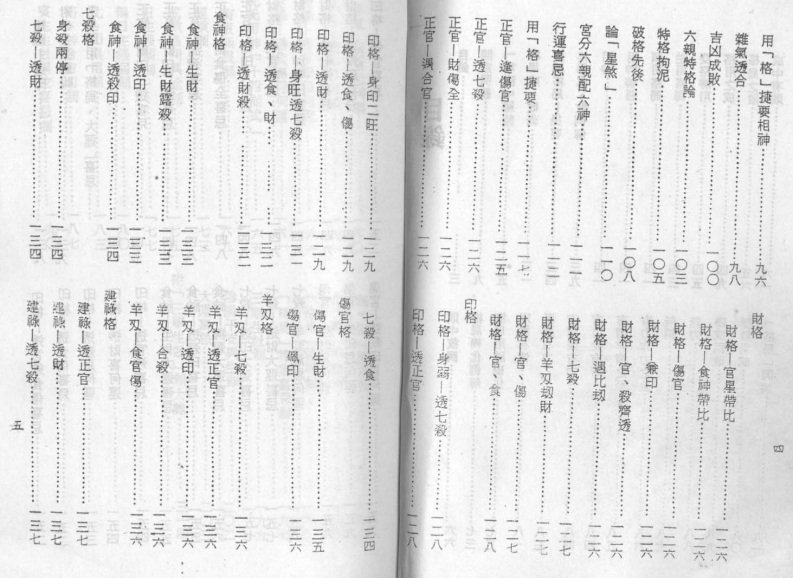 用「格」捷要相神…………九六
雜氣透合…………九八
吉凶成敗…………一〇〇
六親特格論…………一〇三
特格拘泥…………一〇五
破格先後…………一〇八
論「星煞」…………一一〇
宮分六親配六神…………一一一
行運喜忌…………一一三
用「格」捷要…………一一七
正官—逢傷官…………一二五
正官—透七殺…………一二六
正官—財傷全…………一二六
正官—遇合官…………一二六
財格
財格—官星帶比…………一二六
財格—食神帶比…………一二六
財格—傷官…………一二六
財格—兼印…………一二六
財格—官、殺齊透…………一二六
財格—遇比刼…………一二六
財格—七殺…………一二七
財格—羊刄刼財…………一二七
財格—官、傷…………一二七
財格—官、食…………一二八
印格
印格—身弱—透七殺…………一二八
印格—透正官…………一二八
四
印格—身印二旺…………一二九
印格—透食、傷…………一二九
印格—透財…………一二九
印格—身旺透七殺…………一三一
印格—透食、財…………一三二
印格—透財殺…………一三二
食神格
食神—生財…………一三三
食神—生財露殺…………一三三
食神—透印…………一三三
食神—透殺印…………一三四
七殺格
身殺兩停…………一三四
七殺—透財…………一三四
七殺—透食…………一三四
傷官格
傷官—生財…………一三五
傷官—佩印…………一三六
羊刄格
羊刄—七殺…………一三六
羊刄—透正官…………一三六
羊刄—透印…………一三六
羊刄—合殺…………一三六
羊刄—食官傷…………一三六
建祿格
建祿—透正官…………一三七
建祿—透財…………一三七
建祿—透七殺…………一三七
五